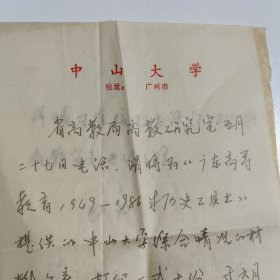 中山大学
校址: 广州市
省高教局高教研究室五月
二十七日电话，请将为《广东高等
教育1949—1986年历史工具书》
提供的中山大学综合情况的材